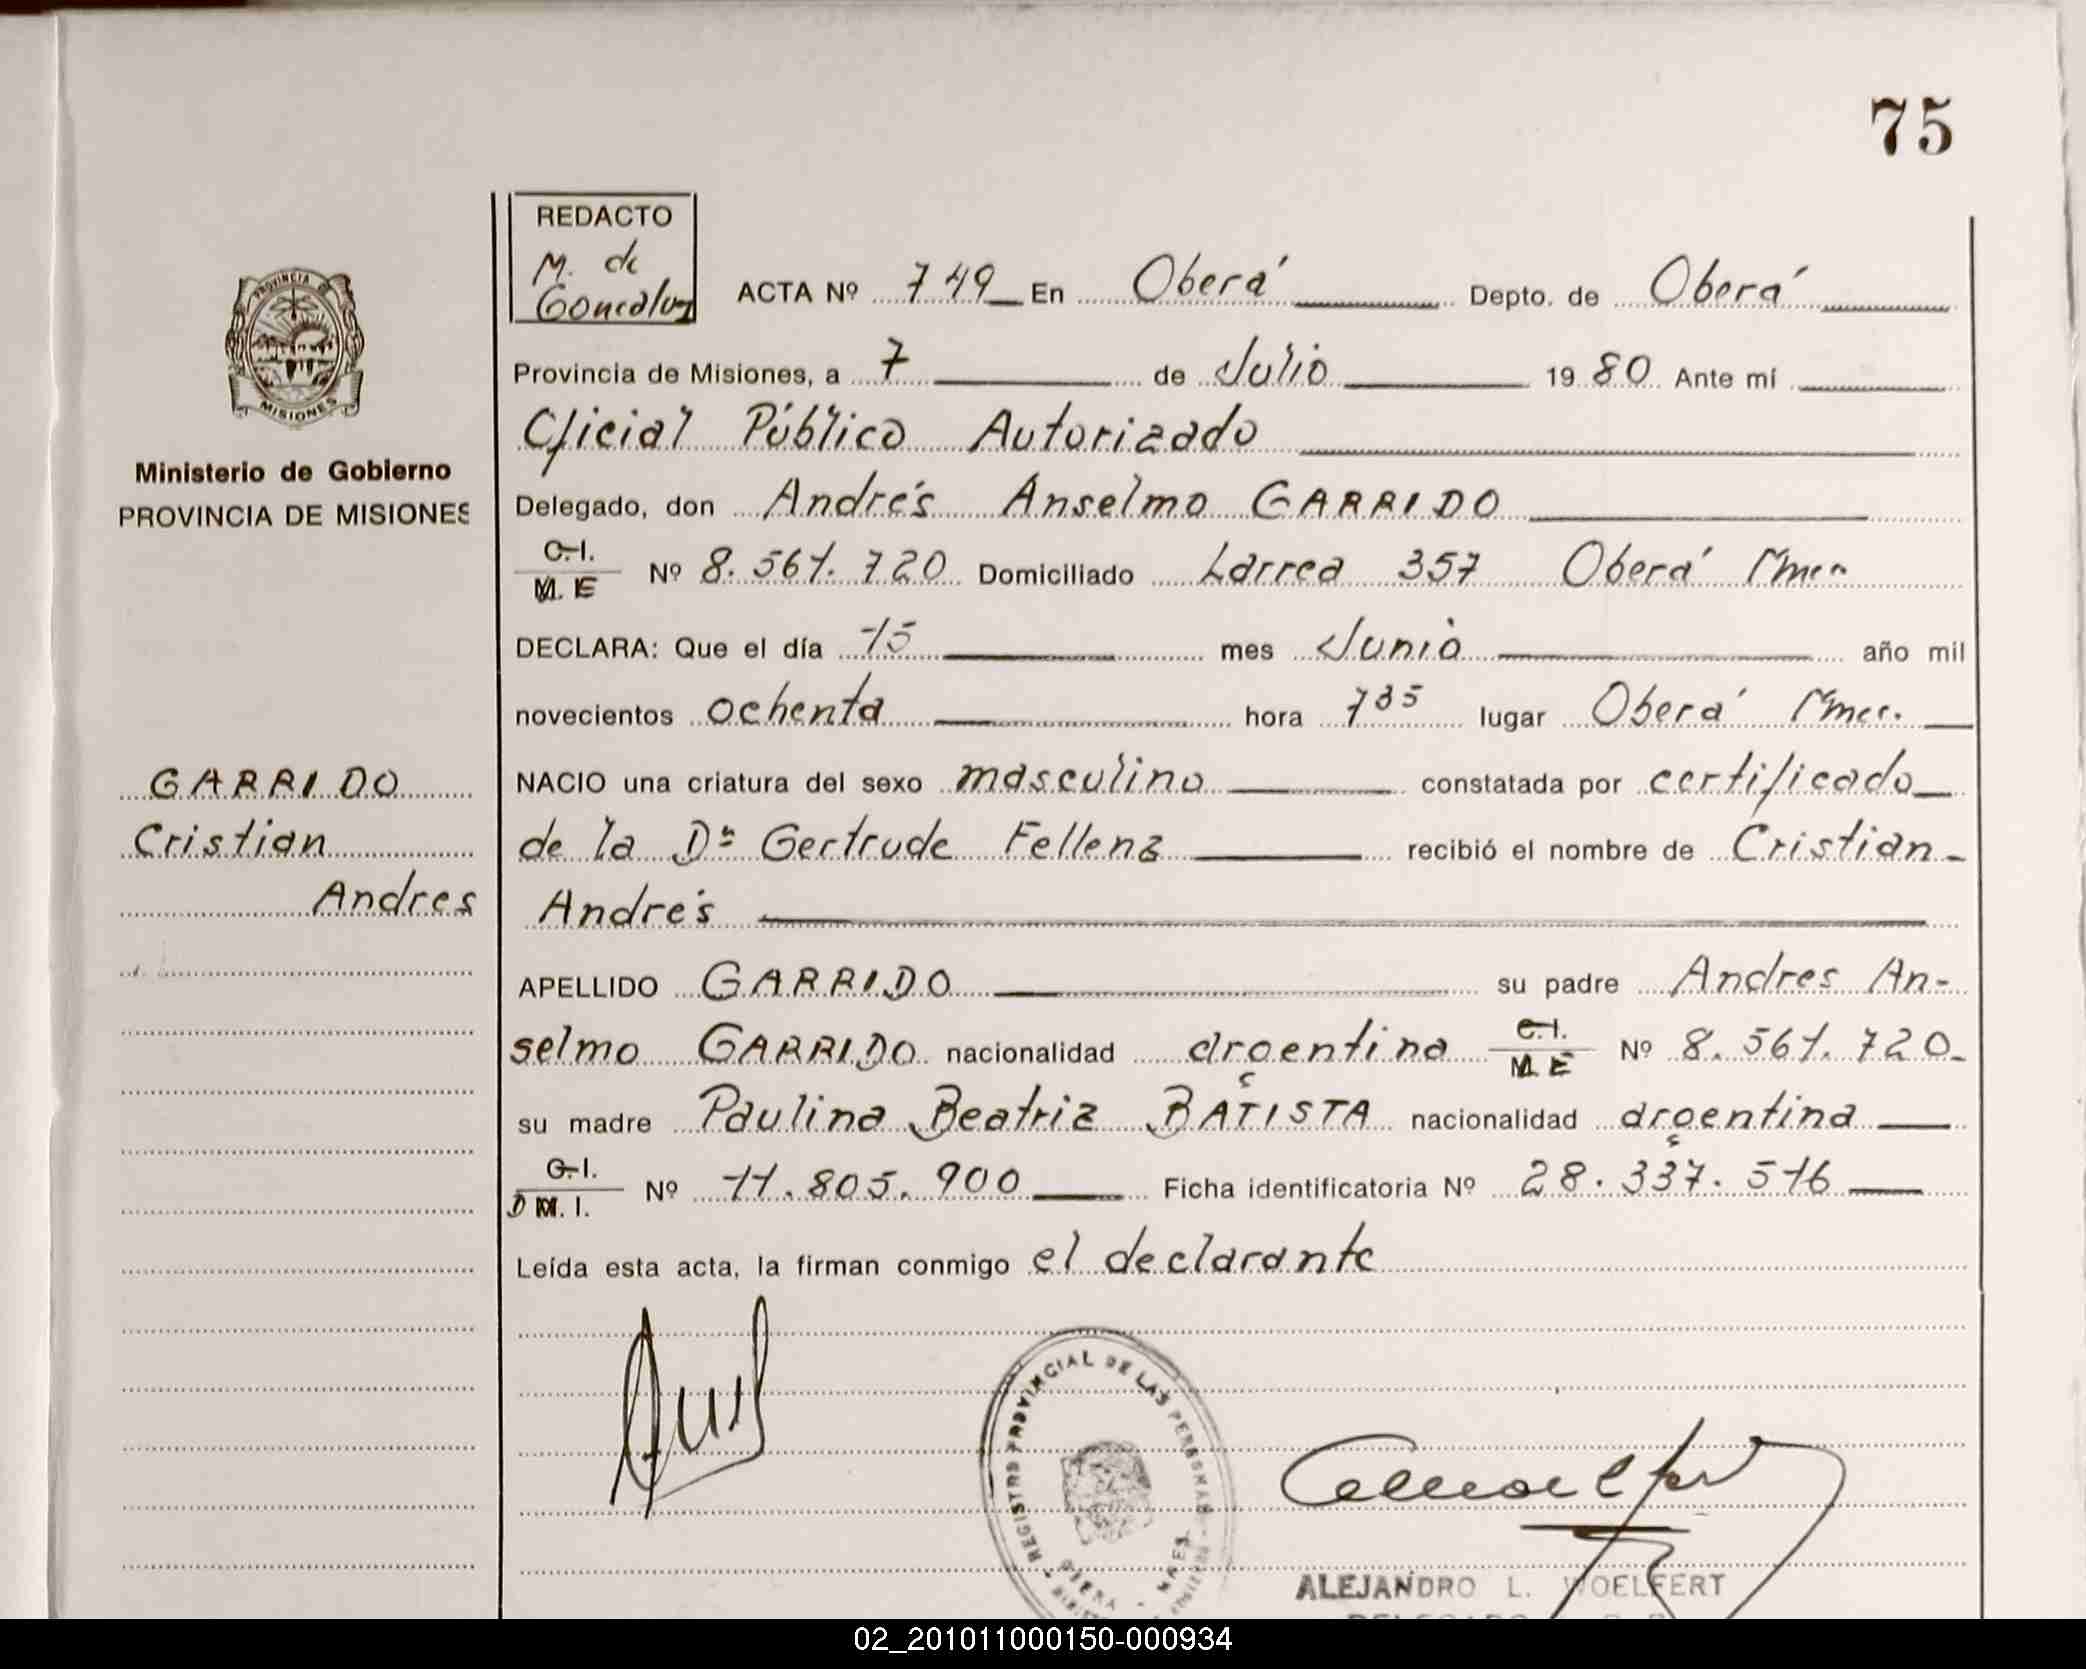 75
REDACTO
M. de
Goncalvez
ACTA Nº 749 En Oberá Depto. de Oberá
PROVINCIA DE
MISIONES
Provincia de Misiones, a 7 de Julio 1980 Ante mí
Oficial Público Autorizado
Ministerio de Gobierno
PROVINCIA DE MISIONES
Delegado, don Andrés Anselmo GARRIDO
C.I.
M. E Nº 8.561.720 Domiciliado Larrea 357 Oberá Mnes
DECLARA: Que el día 15 mes Junio año mil
novecientos ochenta hora 7 35 lugar Oberá Mnes.
GARRIDO
Cristian
Andres
NACIO una criatura del sexo masculino constatada por certificado
de la Dra Gertrude Fellenz recibió el nombre de Cristian
Andrés
APELLIDO GARRIDO su padre Andres An-
selmo GARRIDO nacionalidad argentina C.I.
M. E Nº 8.561.720
su madre Paulina Beatriz BATISTA nacionalidad argentina
C.I.
D M. I. Nº 11.805.900 Ficha identificatoria Nº 28.337.516
Leída esta acta, la firman conmigo el declarante
REGISTRO PROVINCIAL DE LAS PERSONAS
OBERA - MNES.
ALEJANDRO L. WOELFERT
02_201011000150-000934